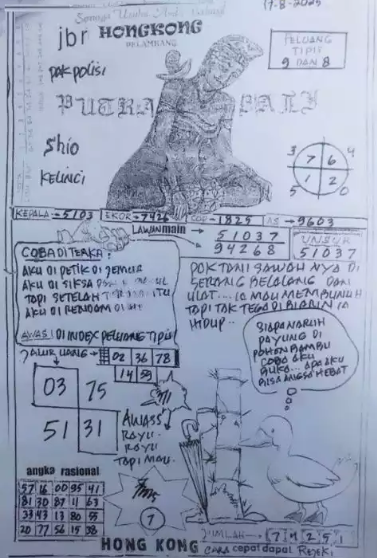 17-8-2025
jbr HONGKONG
PALEMBANG
PELUANG
TIPIS
9 DAN 8
PAK POLISI
PUTRA PATI
Shio
KELINCI
3 4
7 6
1 2
5 0
KEPALA→5103 EKOR→7426 COP→1825 AS→9603
LAWAN main
51037
94268
UNSUR
51037
COBA DI TEAKA:
AKU DI PETIK DI JEMUR
AKU DI SIKSA
TAPI SETELAH ITU
AKU DI RENDAM DI
AWAS! DI INDEX PELUANG TIPIS
JALUR UANG→ 02 36 78
14 59
PAK TANI SAWAH NYA DI
SERANG BELALANG DAN
ULAT.... IA MAU MEMBUNUH
TAPI TAK TEGA DI BIARIN IA
HIDUP..
SIAPA NARUH
PAYUNG DI
POHON BAMBU
COBA AKU
BUKA... APA AKU
BISA ANGSA HEBAT
03 75
51 31
AWASS
RAYU
RAYU
TAPI MAU..
angka rasional
57 16 00 95 41
81 30 87 11 63
33 43 13 80 55
20 77 56 15 38
7
JUMLAH→
HONG KONG CARA cepat dapat Rezeki